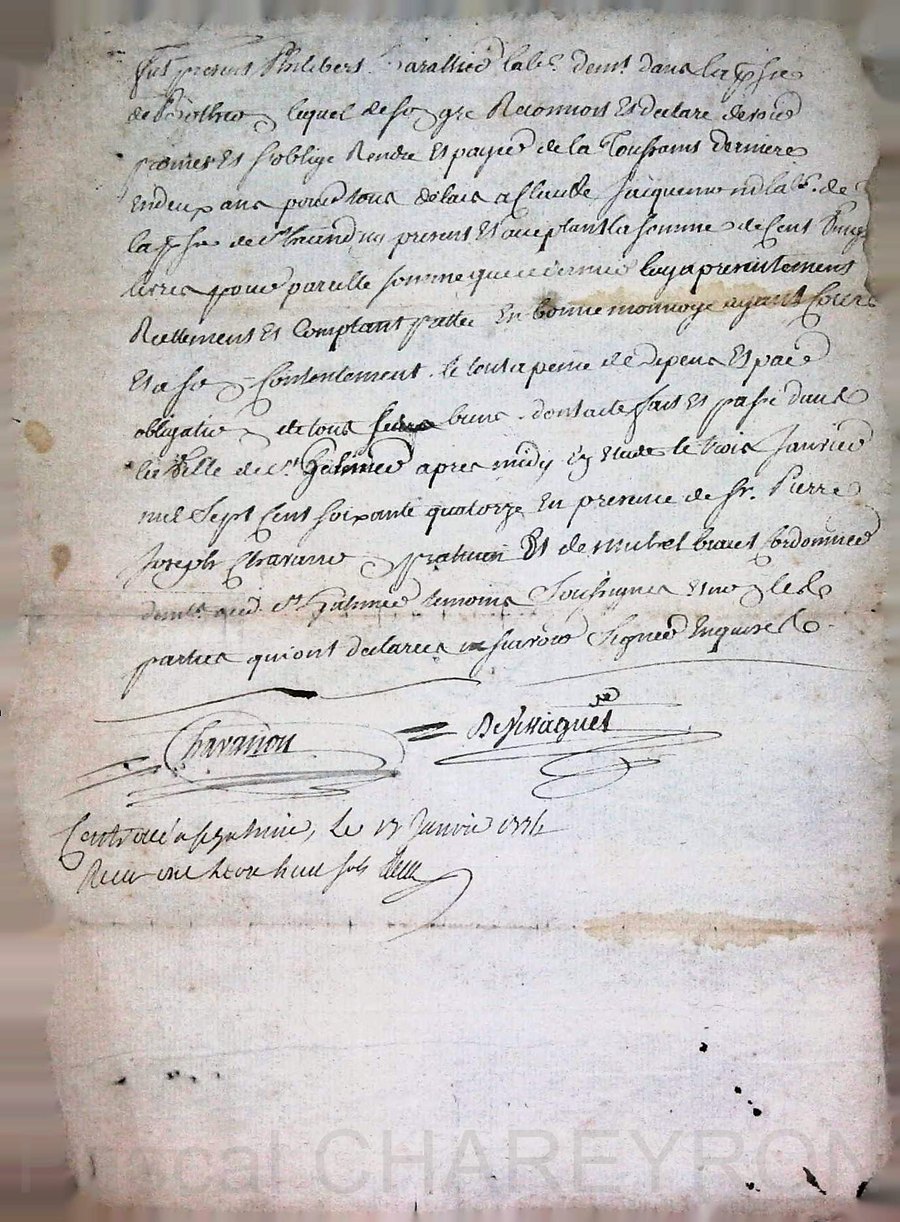 fut present Philibert Barallier lab.r dem.t dans la p.sse
de lequel de son gré Reconnois Et declare devoir
promet Et soblige Rendre Et payer de la Toussaints derniere
En deux ans pour tous delais a Claude Jacquemond lab.r de
la p.sse de present Et acceptant la somme de Cent Vingt
livres pour pareille somme que ce dernier luy a presentement
Reellement Et Comptant prettée En bonne monnoye ayant Cours
Et a son Contentement. le tout a peine de depens Et par
obligation de tous biens. dont acte fait Et passé dans
la Ville de S.t Galmier apres midy En Etude le trois Janvier
mil Sept Cent soixante quatorze En presence de Sr. Pierre
Joseph Chavanon praticien Et de michel Cordonnier
dem.ts aud. S.t Galmier temoins Soussignes Et non les d.
parties qui ont declarées ne scavoir Signer Enquises
Chavanon Desverragues
Controllé a St galmier, Le 13 Janvier 1774
Receu une Livre huit sols
Pascal CHAREYRON